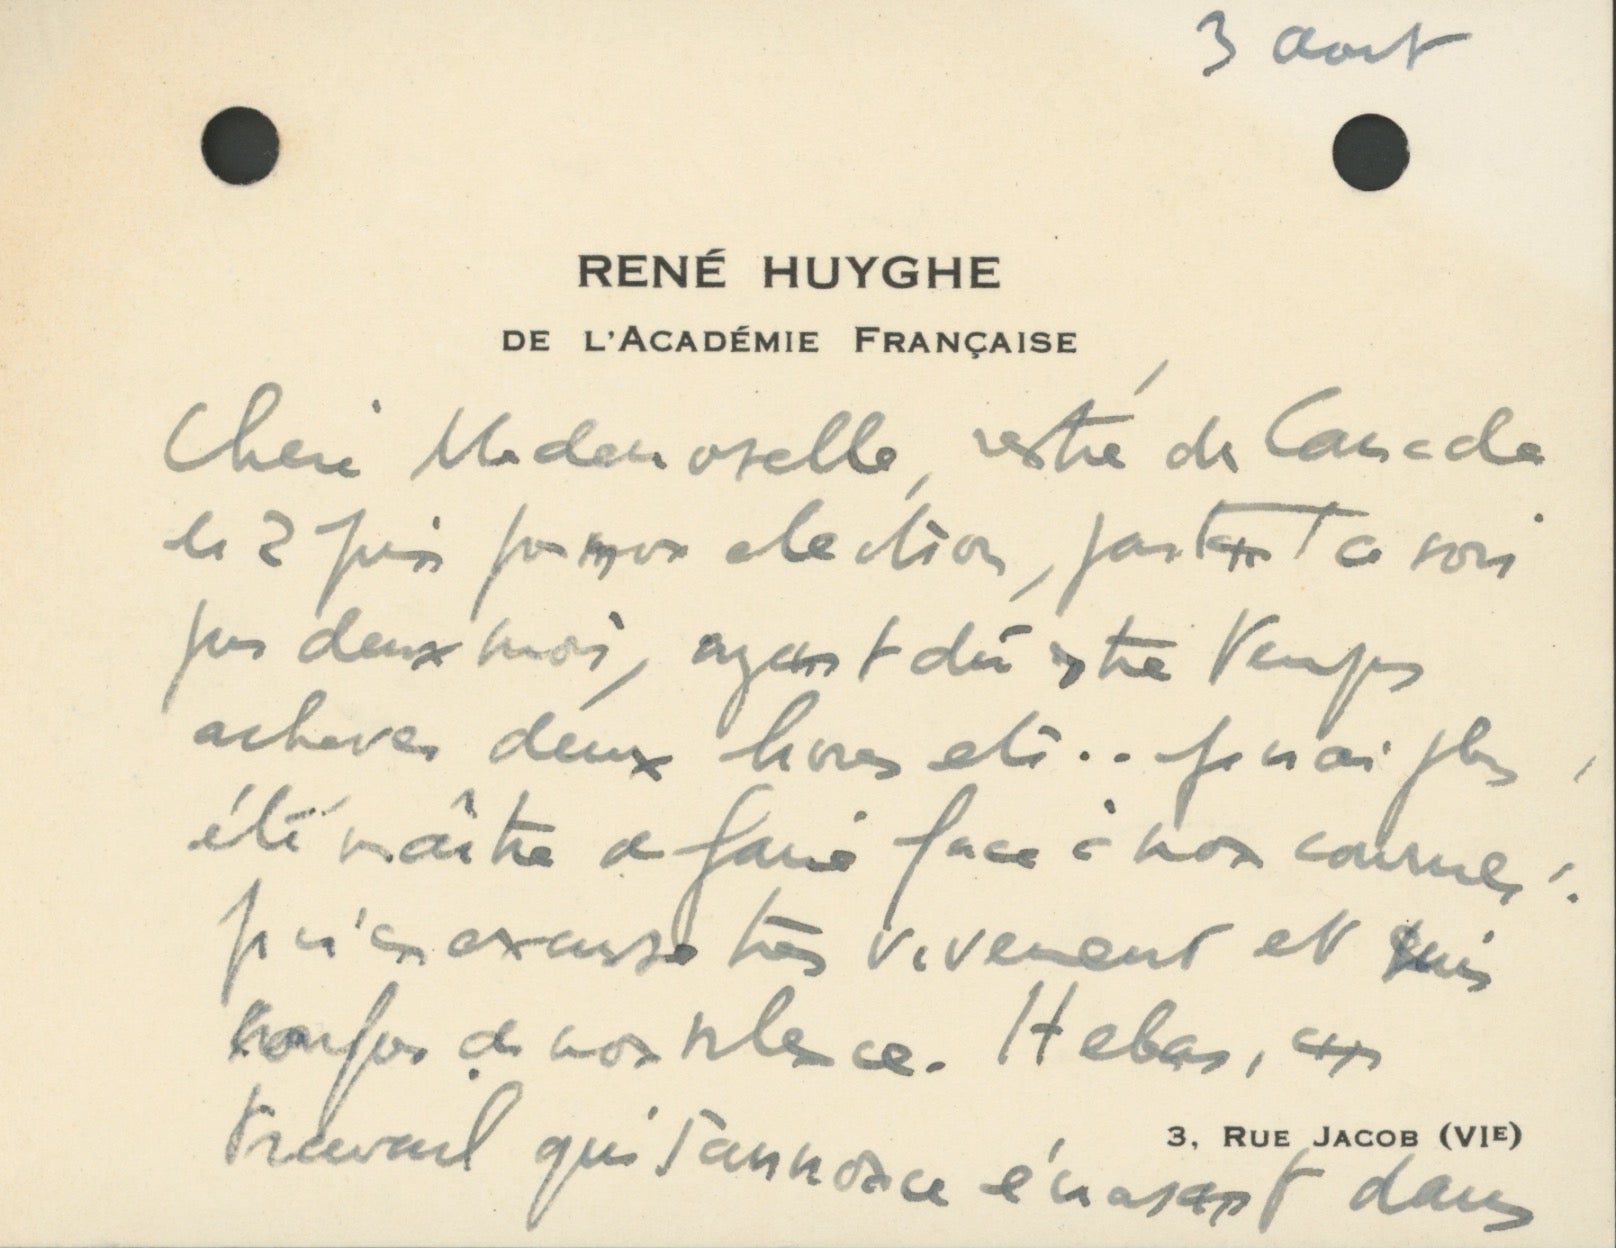 3 août
RENÉ HUYGHE
DE L'ACADÉMIE FRANÇAISE
Chère Mademoiselle, rentré du Canada
le 2 juin pour mon élection, partant ce soir
pour deux mois, ayant dû entre temps
achever deux livres etc... je n'ai plus
été maître de faire face à mon courrier.
Je m'en excuse très vivement et suis
confus de mon silence. Hélas, un
travail qui s'annonce écrasant dans
3, RUE JACOB (VIE)